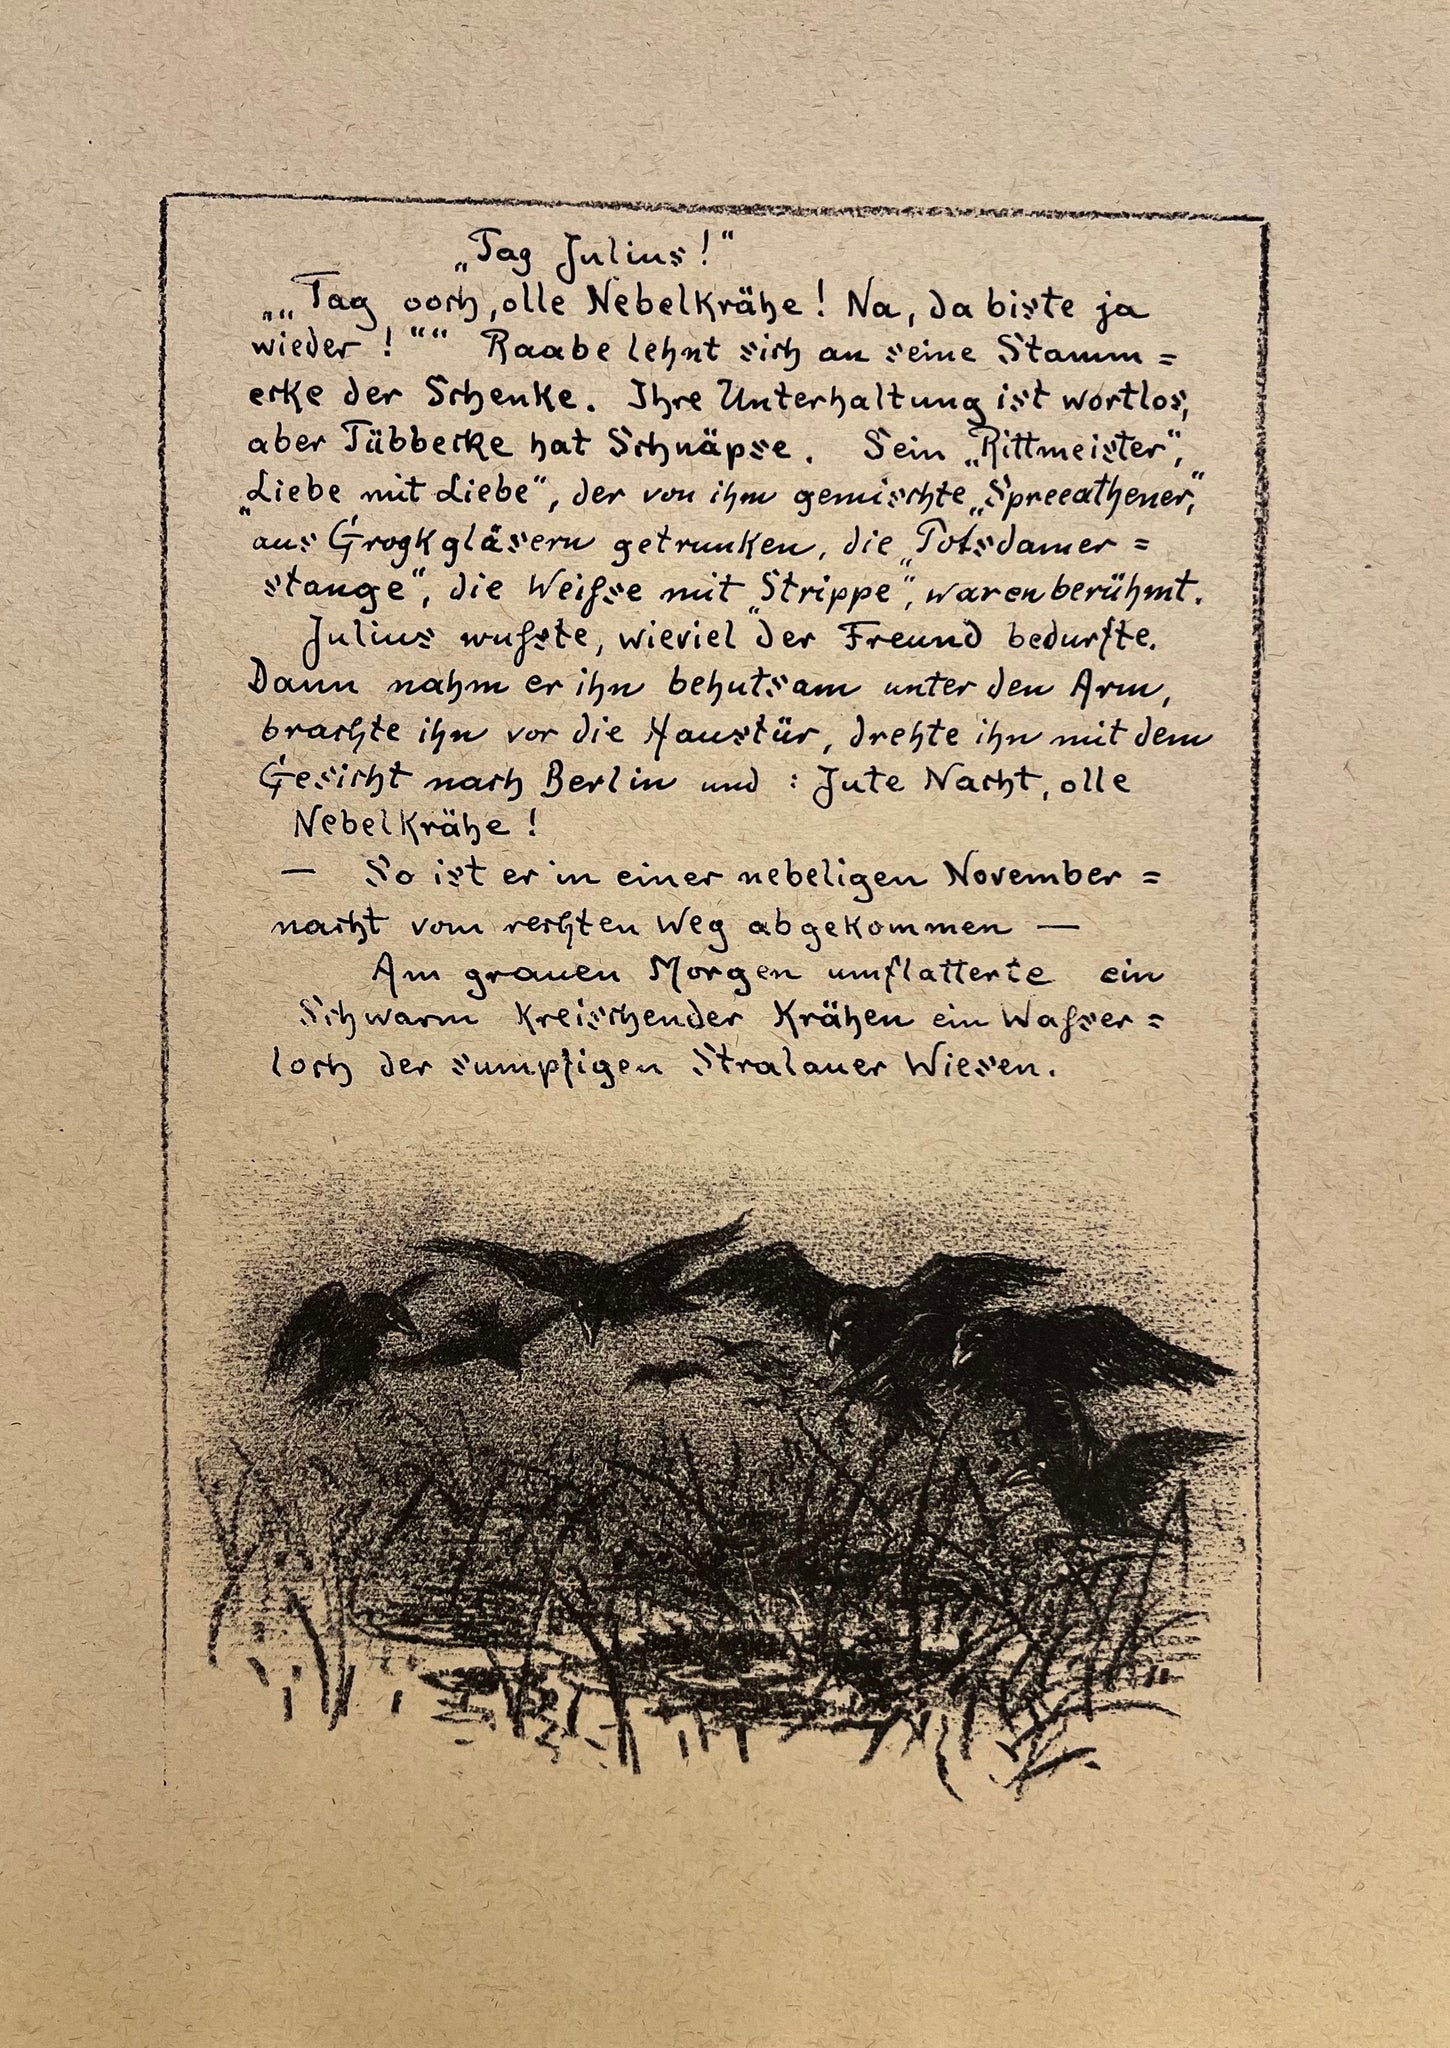 „Tag Julius!“
„„Tag ooch, olle Nebelkrähe! Na, da biste ja
wieder!““ Raabe lehnt sich an seine Stamm=
ecke der Schenke. Ihre Unterhaltung ist wortlos,
aber Tübbecke hat Schnäpse. Sein „Rittmeister“,
„Liebe mit Liebe“, der von ihm gemischte „Spreeathener,“
aus Grogkgläsern getrunken, die „Potsdamer=
stange“, die Weißse mit „Strippe“, waren berühmt.
Julius wußste, wieviel der Freund bedurfte.
Dann nahm er ihn behutsam unter den Arm,
brachte ihn vor die Haustür, drehte ihn mit dem
Gesicht nach Berlin und : Jute Nacht, olle
Nebelkrähe!
— So ist er in einer nebeligen November=
nacht vom rechten Weg abgekommen —
Am grauen Morgen umflatterte ein
Schwarm kreischender Krähen ein Wasser=
loch der sumpfigen Stralauer Wiesen.